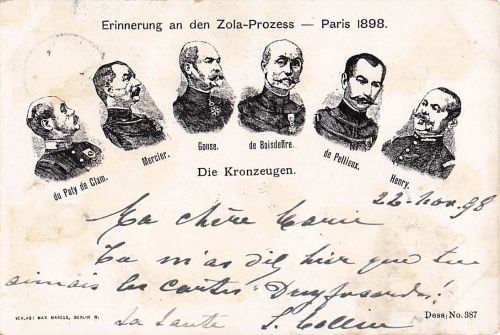 Erinnerung an den Zola-Prozess — Paris 1898.
du Paty de Clam.
Mercier.
Gonse.
de Boisdeffre.
de Pellieux.
Henry.
Die Kronzeugen.
22 Nov. 98
Ma chère Marie
Tu m'as dit hier que tu
aimais les cartes "Dreyfusardes"!
VERLAG: MAX MARCUS, BERLIN W.
Dess. No. 387
La Tante